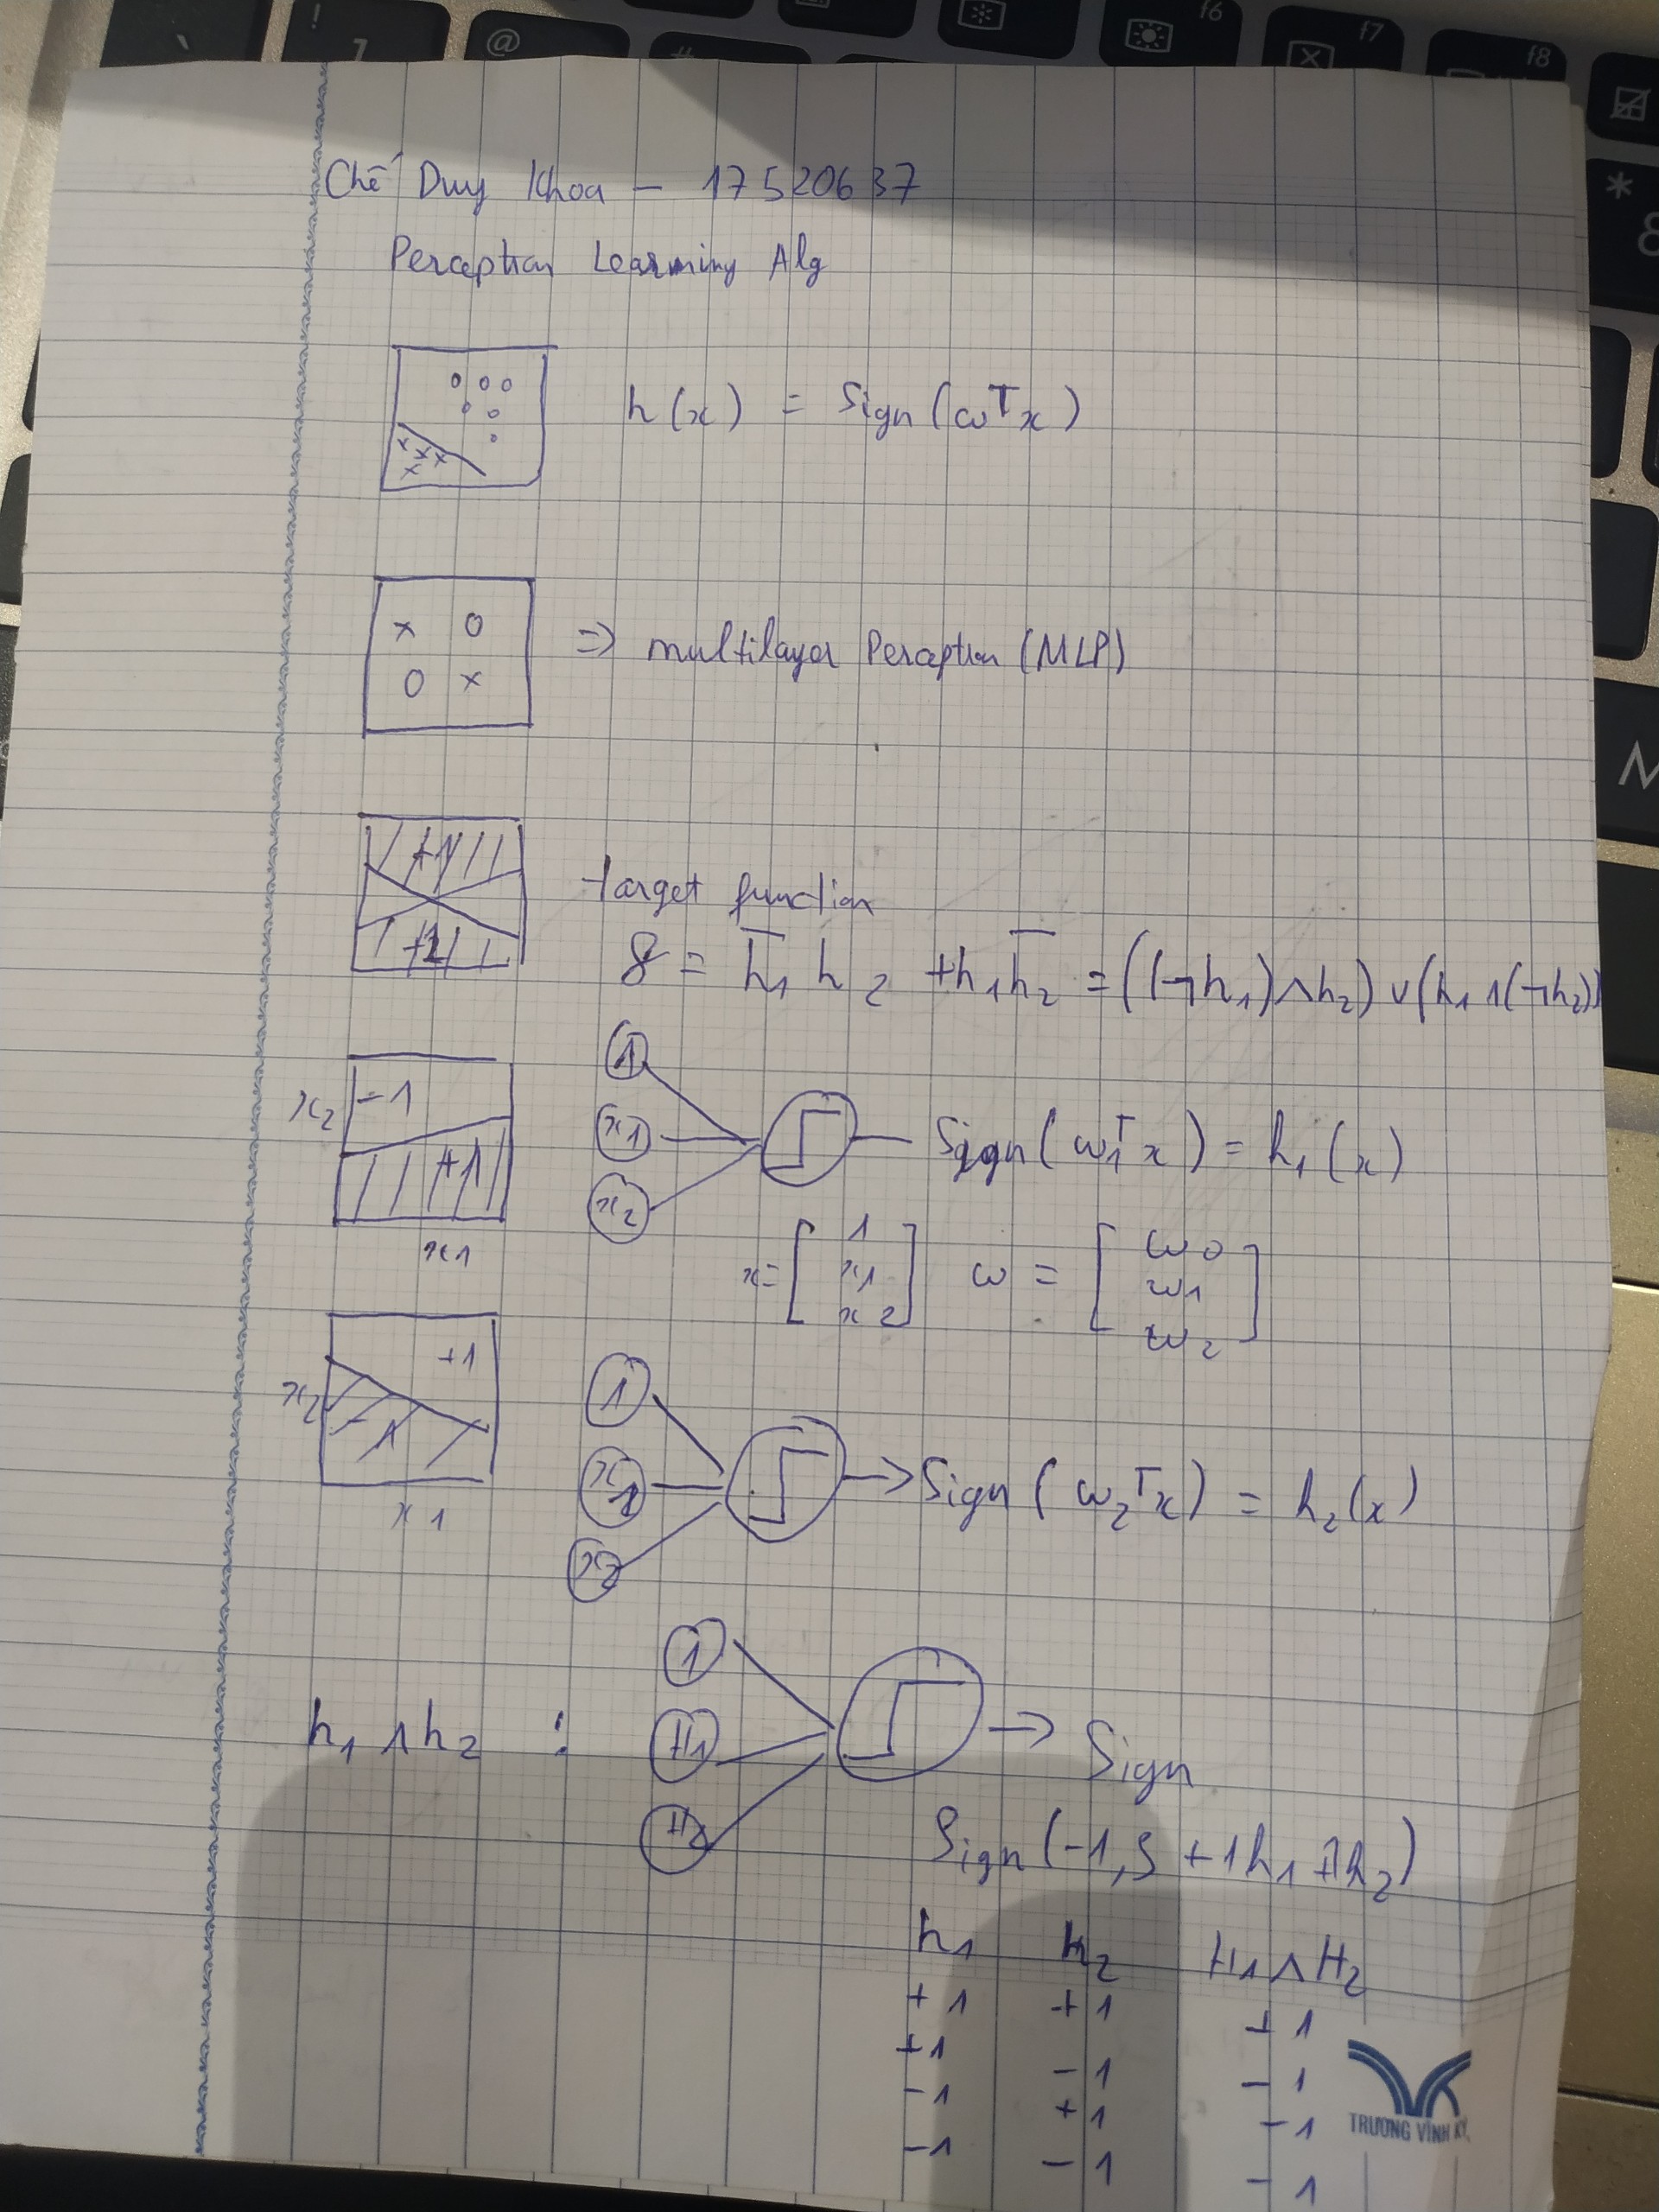 f6
f7
f8
!
1
@
#
*
8
M
Chế Duy Khoa – 17520637
Perception Learning Alg
h(x) = Sign(ωᵀx)
x o
o x
=> multilayer Perception (MLP)
+1
+1
target function
8 = h̅₁ h₂ + h₁h̅₂ = ((¬h₁)∧h₂) ∨ (h₁ ∧(¬h₂))
x₂ -1
+1
x1
1
x1
x2
Sign(ω₁ᵀx) = h₁(x)
x = [ 1 x1 x2 ] ω = [ ω0 ω1 ω2 ]
+1
x₂ -1
x1
1
x2
-> Sign(ω₂ᵀx) = h₂(x)
h₁ ∧ h₂ :
1
H1
H2
-> Sign
Sign(-1,5 + 1h₁ + 1h₂)
h₁ h₂ H₁ ∧ H₂
+1 +1 +1
+1 -1 -1
-1 +1 -1
-1 -1 -1
TRƯƠNG VĨNH KÝ